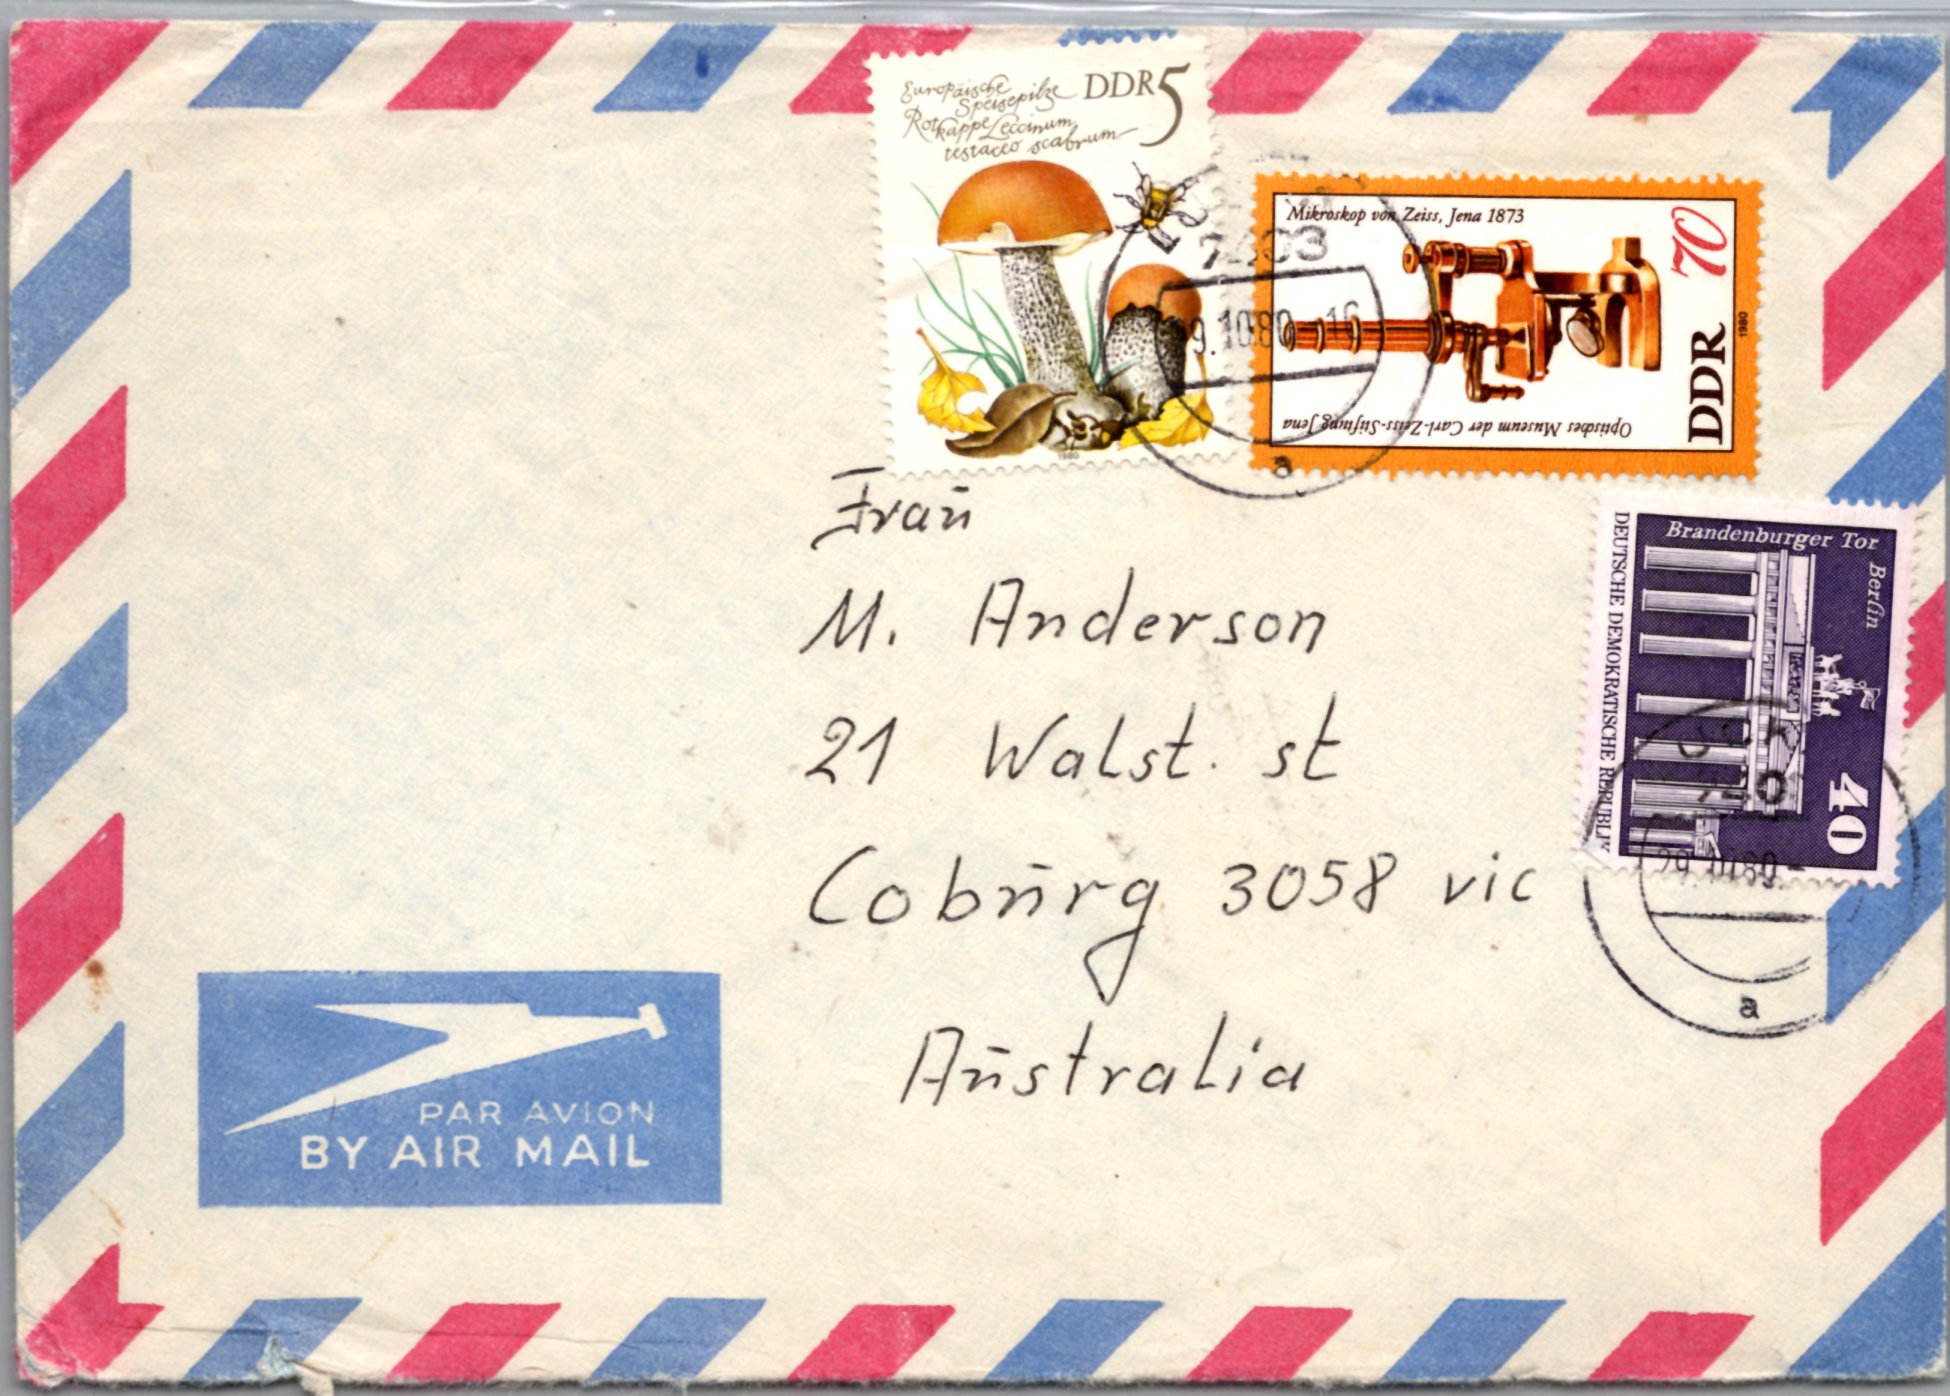 Europäische
Speisepilze
Rotkappe Leccinum
testaceo scabrum
DDR 5
1980
Mikroskop von Zeiss, Jena 1873
70
DDR
1980
Optisches Museum der Carl-Zeiss-Stiftung Jena
9.10.80-16
a
Frau
M. Anderson
21 Walst. st
Coburg 3058 vic
Australia
Brandenburger Tor
Berlin
40
DEUTSCHE DEMOKRATISCHE REPUBLIK
29.10.80
a
PAR AVION
BY AIR MAIL